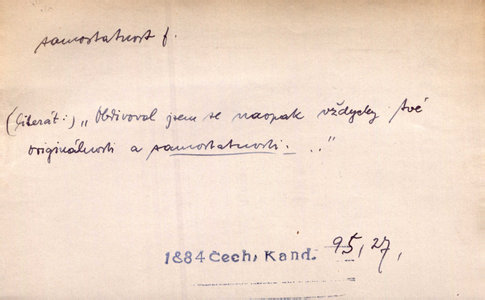 samostatnost f.
(Literát:) „Obdivoval jsem se naopak vždycky tvé
originálnosti a samostatnosti. . ."
1884 Čech, Kand. 95, 27,